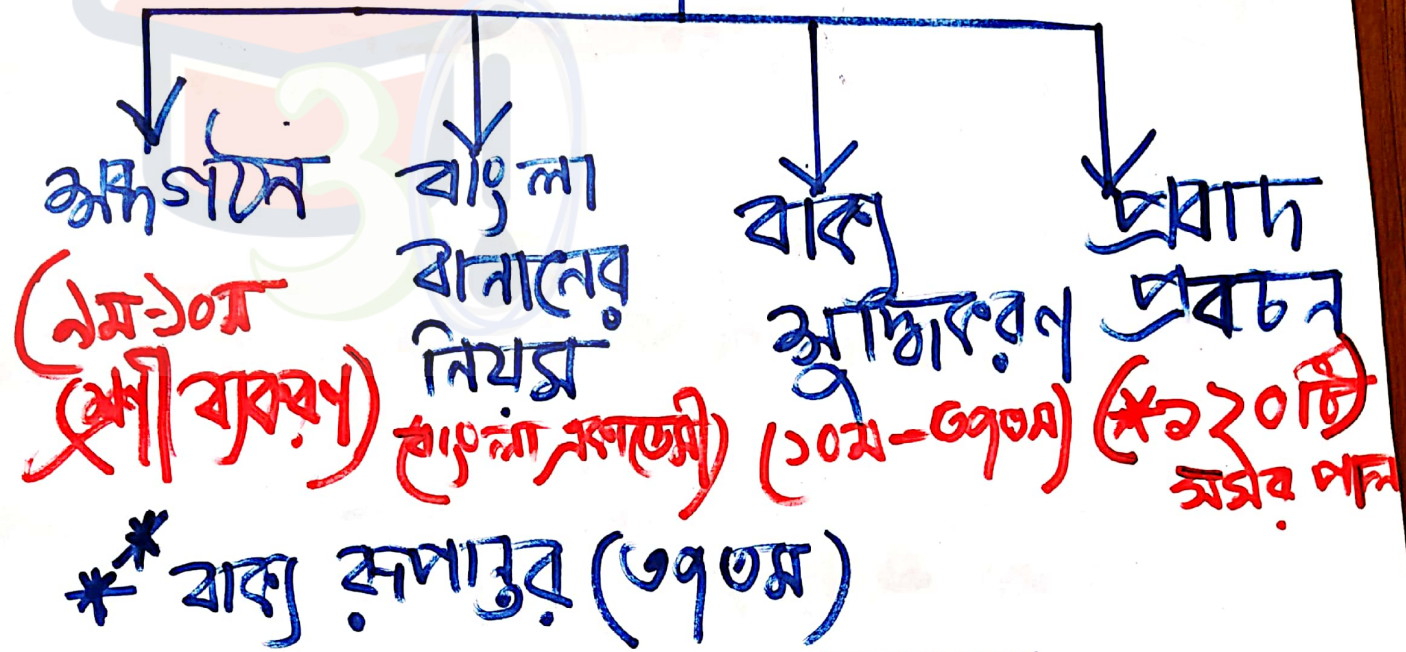 শব্দগঠন
(৯ম-১০ম
শ্রেণী ব্যকরণ)
বাংলা
বানানের
নিয়ম
(বাংলা একাডেমী)
বাক্য
শুদ্ধিকরণ
(১০ম-৩৭তম)
প্রবাদ
প্রবচন
(*১২০টি)
সমর পাল
** বাক্য রূপান্তর (৩৭তম)